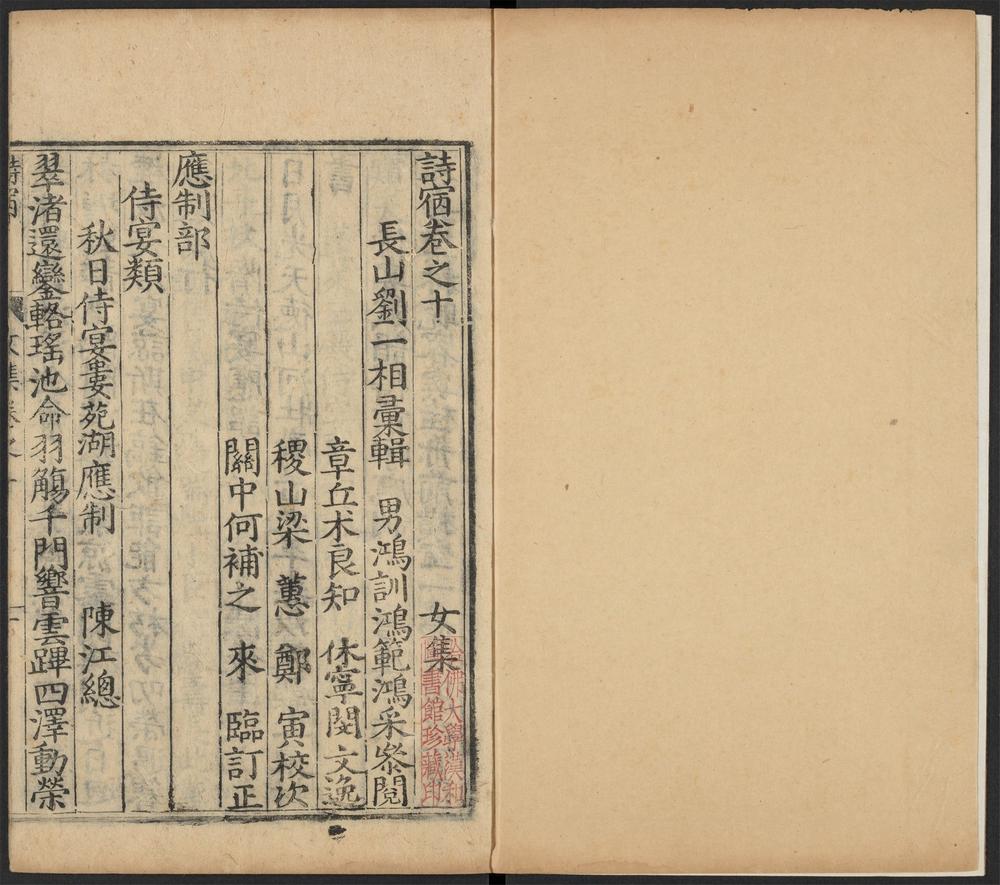 詩宿卷之十 女集
哈佛大學漢和
圖書館珍藏印
長山劉一相彙輯 男鴻訓鴻範鴻采叅閱
章丘术良知 休寧閔文逸
稷山梁蕙 鄭寅校次
關中何補之 來臨訂正
應制部
侍宴類
秋日侍宴婁苑湖應制 陳江總
翠渚還鑾輅瑤池命羽觴千門響雲蹕四澤動榮
詩宿 女集卷之十 一